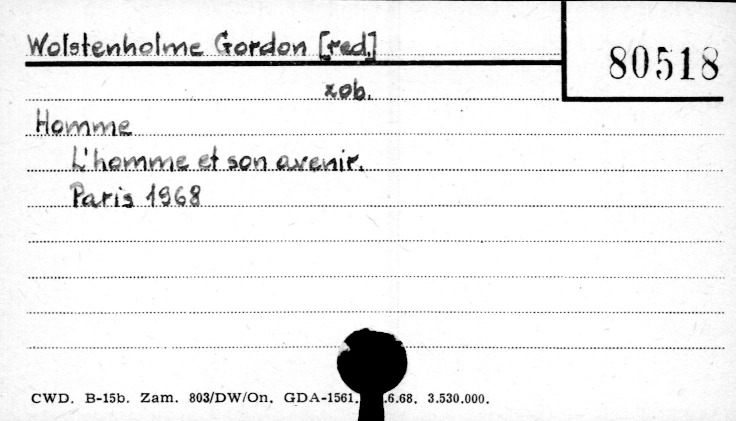 Wolstenholme Gordon [red.]
80518
zob.
Homme
L'homme et son avenir.
Paris 1968
CWD. B-15b. Zam. 803/DW/On. GDA-1561. .6.68. 3.530.000.